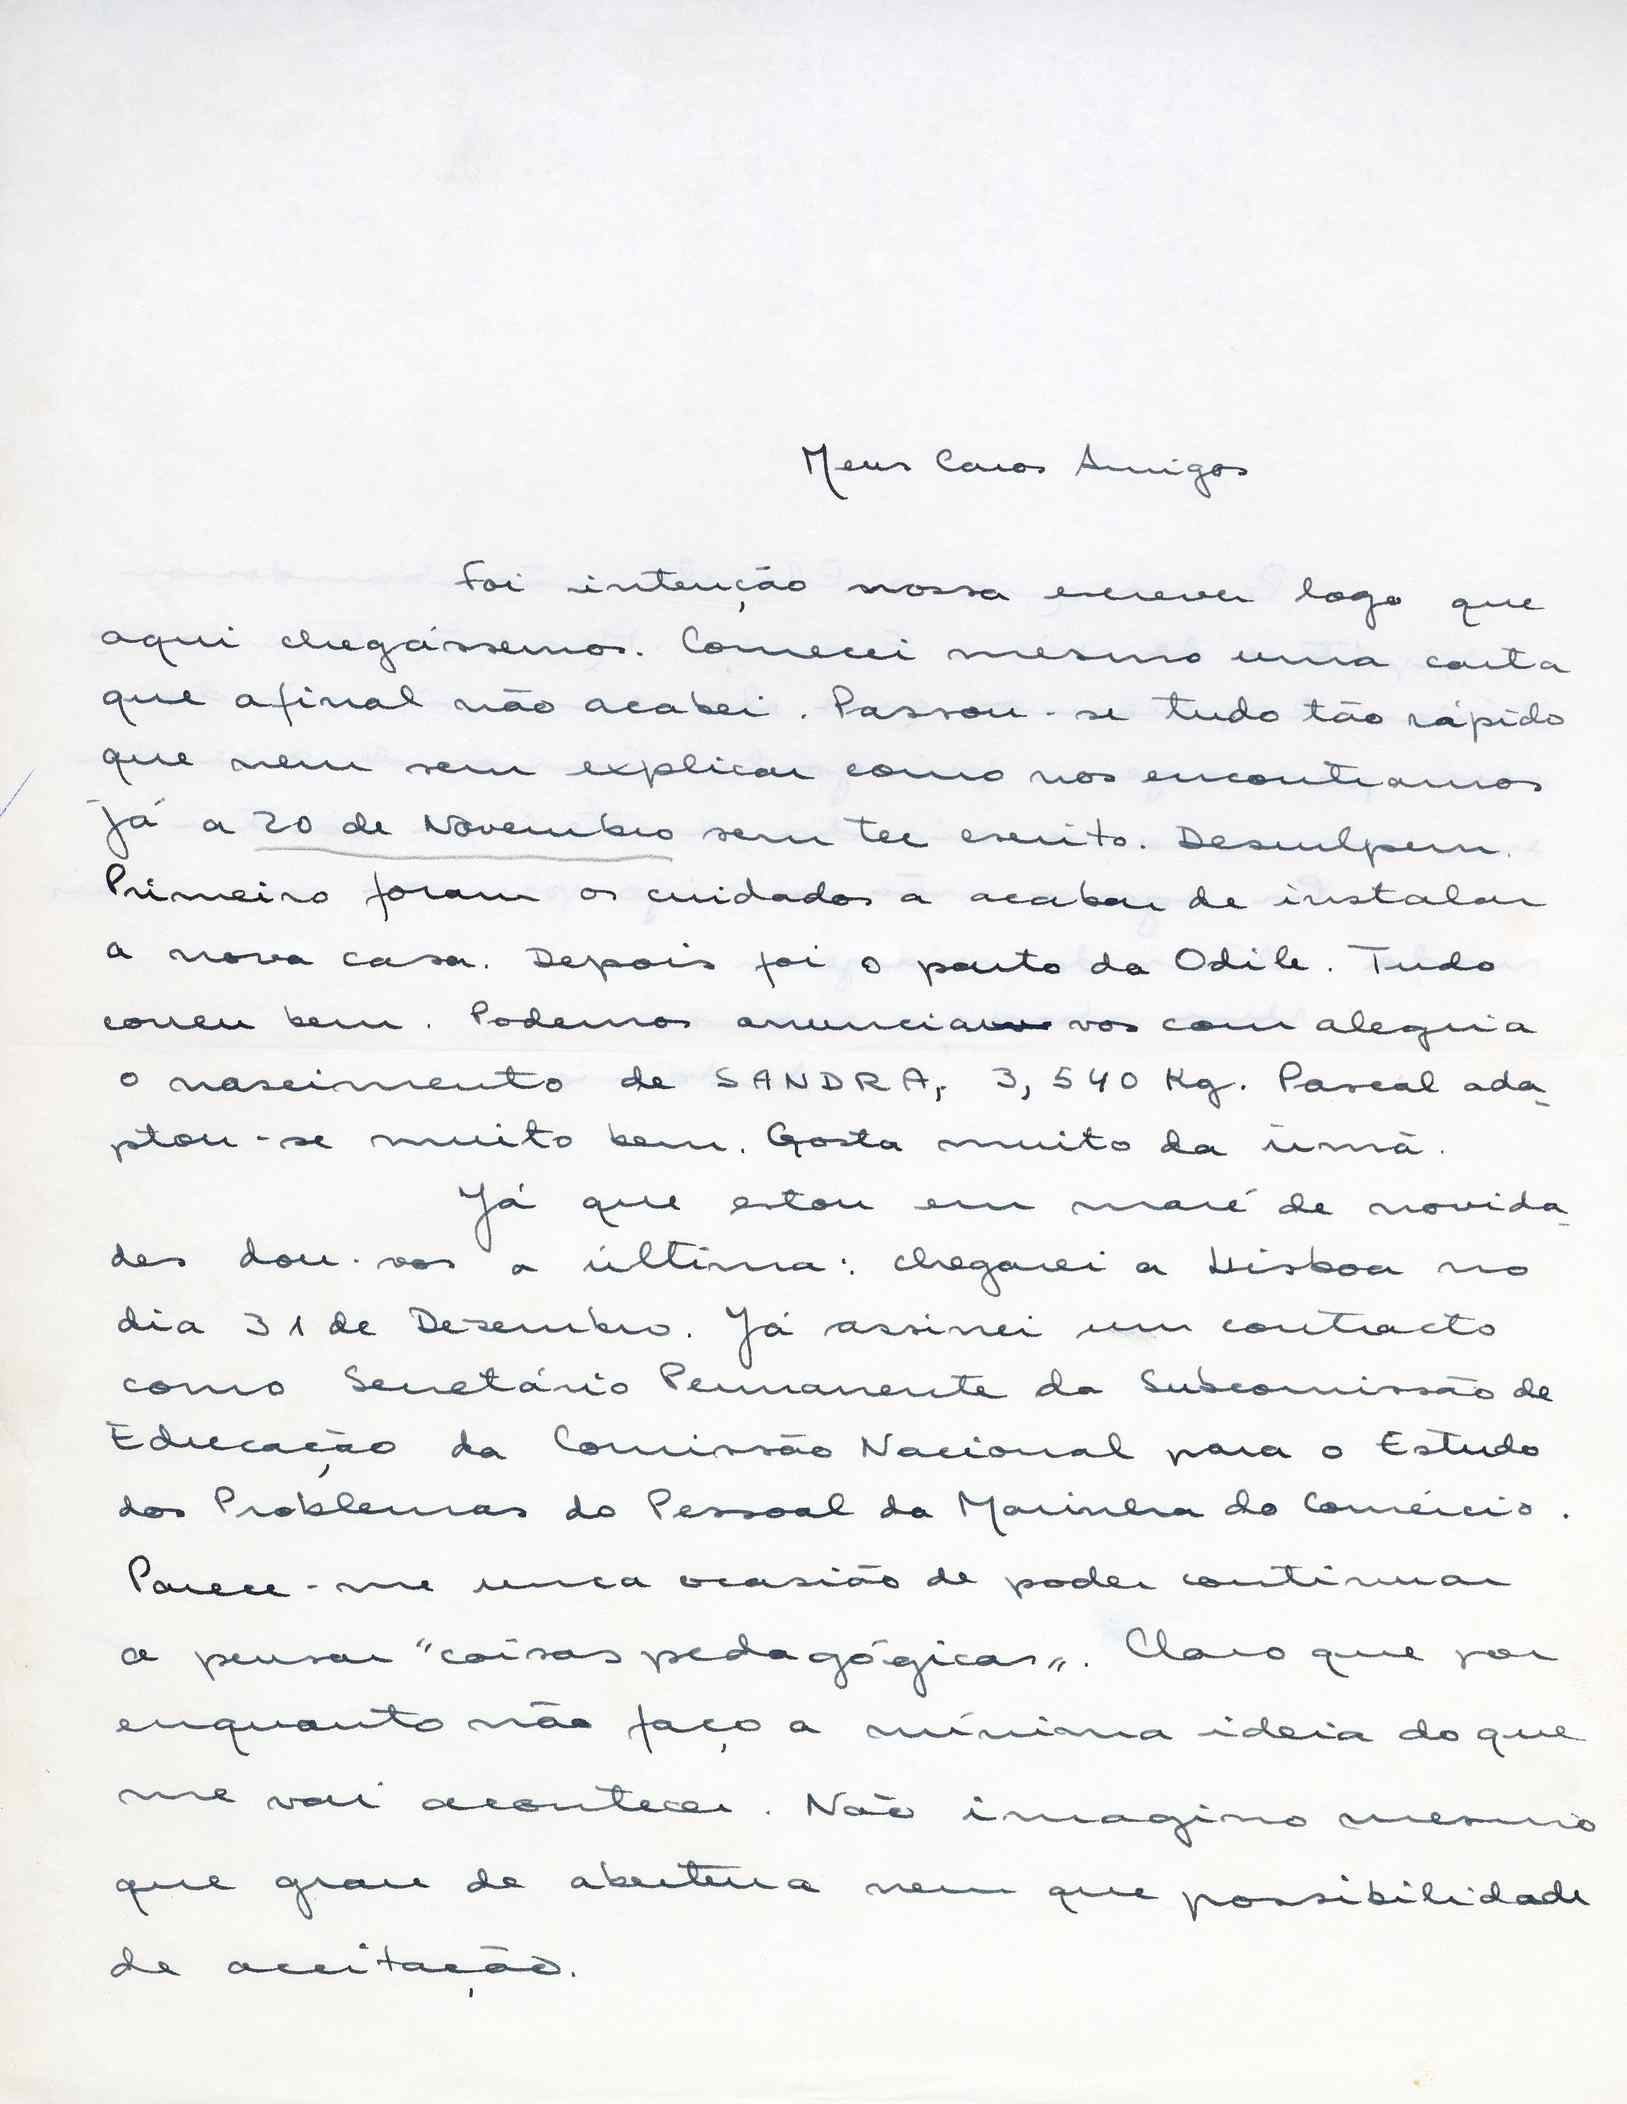 Meus Caros Amigos
Foi intenção nossa escrever logo que
aqui chegássemos. Comecei mesmo uma carta
que afinal não acabei. Passou-se tudo tão rápido
que nem sem explicar como nos encontramos
já a 20 de Novembro sem ter escrito. Desculpem.
Primeiro foram os cuidados a acabar de instalar
a nova casa. Depois foi o parto da Odile. Tudo
correu bem. Podemos anunciar vos com alegria
o nascimento de SANDRA, 3,540 Kg. Pascal ada-
ptou-se muito bem. Gosta muito da irmã.
Já que estou em maré de novida-
des dou-vos a última: chegarei a Lisboa no
dia 31 de Dezembro. Já assinei um contracto
como Secretário Permanente da Subcomissão de
Educação da Comissão Nacional para o Estudo
dos Problemas do Pessoal da Marinha do Comércio.
Parece-me unca ocasião de poder continuar
a pensar "coisas pedagógicas". Claro que por
enquanto não faço a mínima ideia do que
me vai acontecer. Não imagino mesmo
que grau de abertura nem que possibilidade
de aceitação.